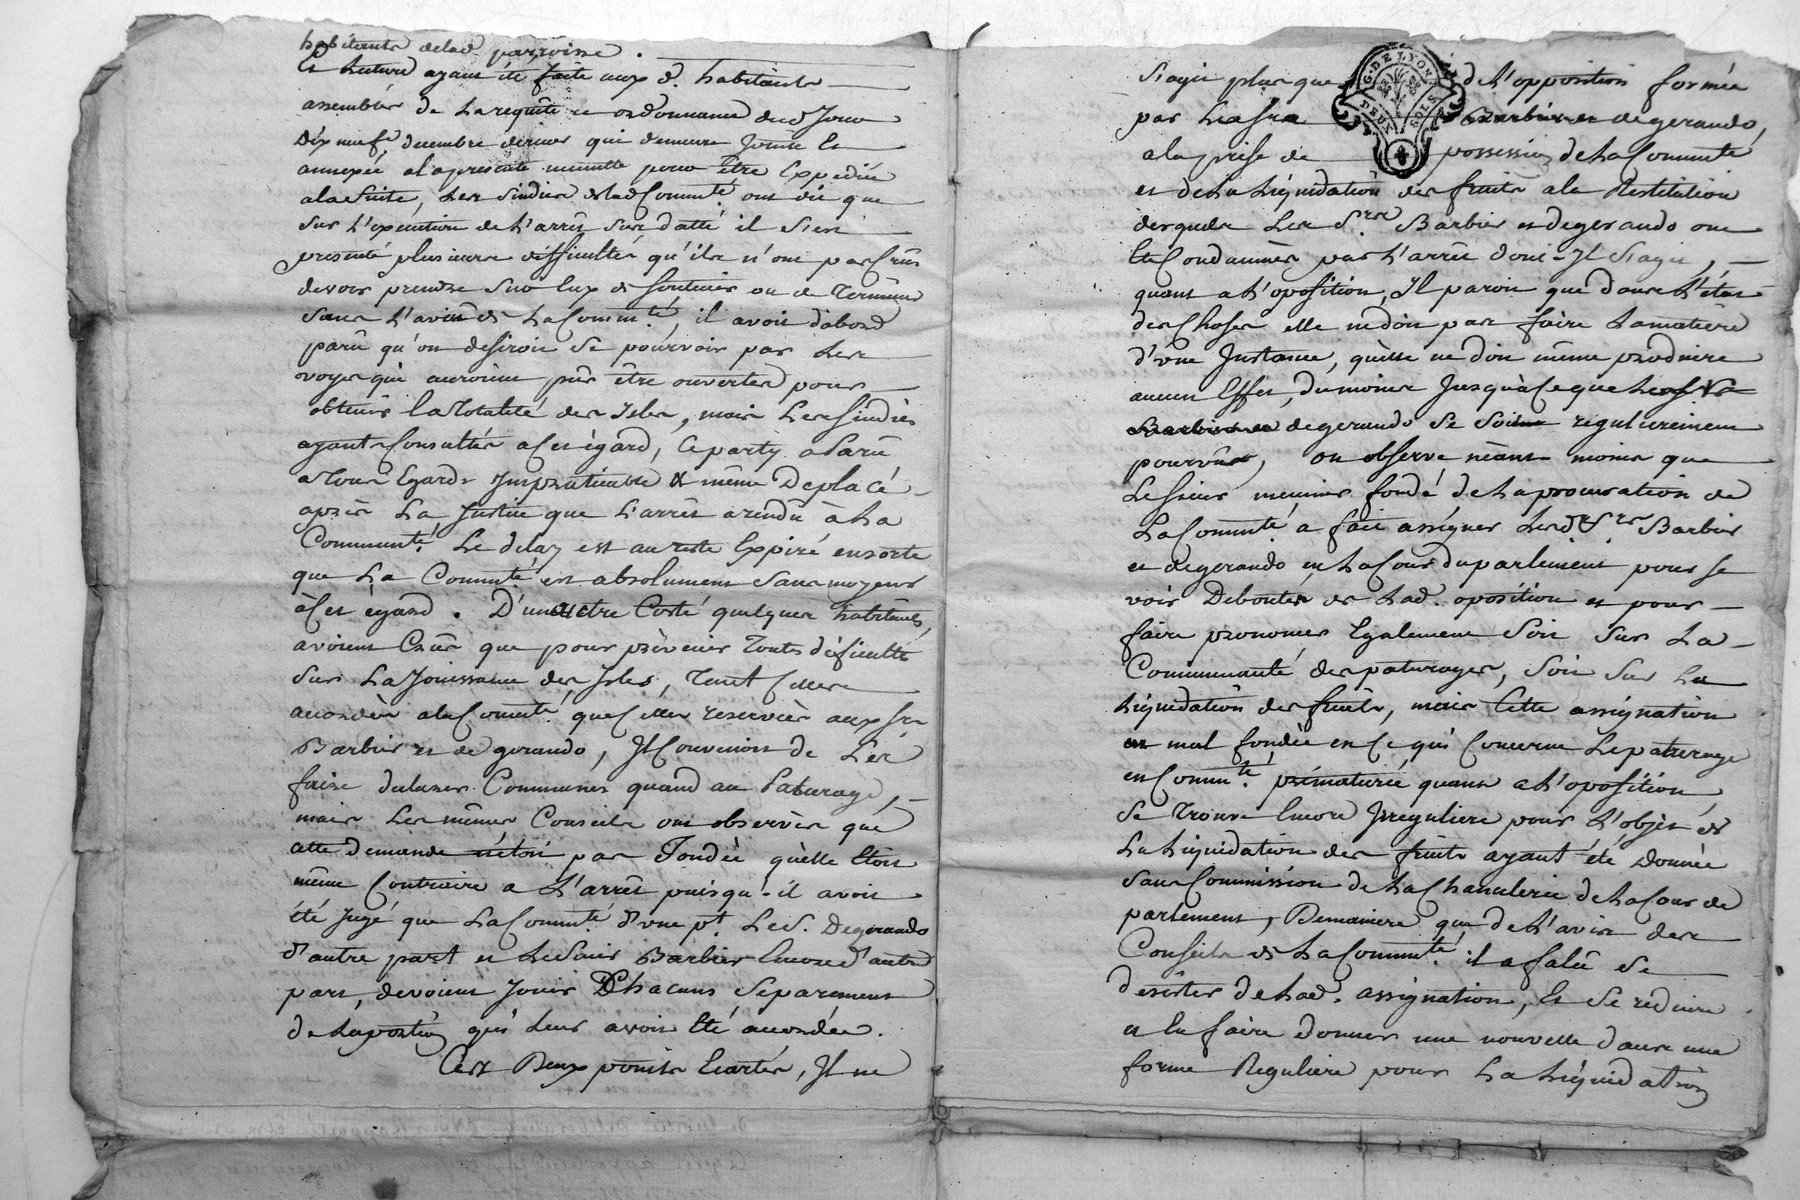 habitants delad. parroisse.
Et lecture ayant été faite auxd. habitants
assemblés de la requête et ordonnance dud Jour
Dix neuf decembre dernier qui demeure Jointe Et
annexée ala presente minutte pour être Expediée
ala Suite, Les Sindics delad Commté. ont dit que
Sur l'execution de L'arrêt Sus datté il S'est
presenté plusieurs difficultés qu'ils n'ont pas Crûs
devoir prendre Sur Eux de soutenir ou de Terminer
sans L'avis de La Commté, il avoit d'abord
parû qu'on desiroit se pourvoir par Les
voyes qui auroient pûs être ouvertes pour
obtenir la totalité des Isles, mais Les Sindics
ayants Consultés a Cet égard, Ce party a Parû
a tous Egards Impraticable & même Deplacé
après La Justice que L'arrêt a rendû à La
Communté. Le delay est au reste Expiré ensorte
que La Commté est absolument Sans moyens
à Cet égard. D'un autre Costé quelques habitants,
avoient Crûs que pour prèvenir Toute dificultté
Sur La Jouissance des Isles, Tant Celles
accordées ala Commté. que Celles reservées aux Srs
Barbier et de gerando, Il Convenoit de Les
faire declarer Communes quand au Paturage,
mais Les mêmes Conseils ont observés que
cette demande n'étoit pas Fondée qu'elle Etoit
même Contraire a L'arrêt puisqu-il avoit
été Jugé que La Commté. d'une pt. Led. Degerando
d'autre part et Le Sieur Barbier Encore d'autre
part, devoient Jouir Chacuns Separement
de La portion qui Leur avoit Eté accordée.
Ces Deux points Ecartés, Il ne
S'agit plus que de L'opposition formée
G. DE LYON
DEUX SOLS
par Les Srs Barbier et degerando,
a la prise de possession de La Commté
et de La Liquidation des fruits a la Restitution
desquels Les Srs. Barbier et degerando ont
Eté Condamnés par L'arrêt dont-Il S'agit,
quant a L'oposition, Il paroit que dans L'état
des Choses elle ne doit pas faire La matiere
d'une Instance, qu'elle ne doit même produire
aucun Effet, du moins Jusqu'à Ce que
degerando Se Soit regulierement
pourvû, on observe néant moins que
Le Sieur meunier fondé de La procuration de
La Commté a fait assigner Lesd. Srs Barbier
et degerando en La Cour du parlement pour se
voir Debouter de Lad. oposition et pour
faire prononcer Egalement Soit Sur La
Communauté des paturages, Soit Sur La
Liquidation des fruits, mais Cette assignation
est mal fondée en Ce qui Concerne Le paturage
en Commté. prématurée quant a L'oposition
Se Trouve Encore Irreguliere pour L'objet de
La Liquidation des fruits ayant été Donnée
Sans Commission de La Chancelerie de La Cour de
parlement, De maniere que de L'avis des
Conseils de La Commté. il a falû Se
désister de Lad. assignation, Et Se reduire
a En faire donner une nouvelle dans une
forme Reguliere pour La Liquidation